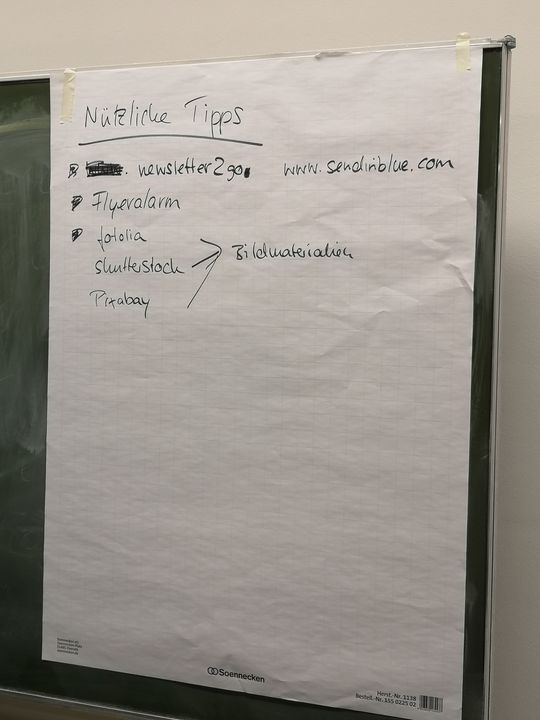 Nützliche Tipps
newsletter2go. www.sendinblue.com
Flyeralarm
fotolia
shutterstock
Bildmaterialien
Pixabay
Soennecken
Herst.-Nr. 1138
Bestell.-Nr. 155 0225 02